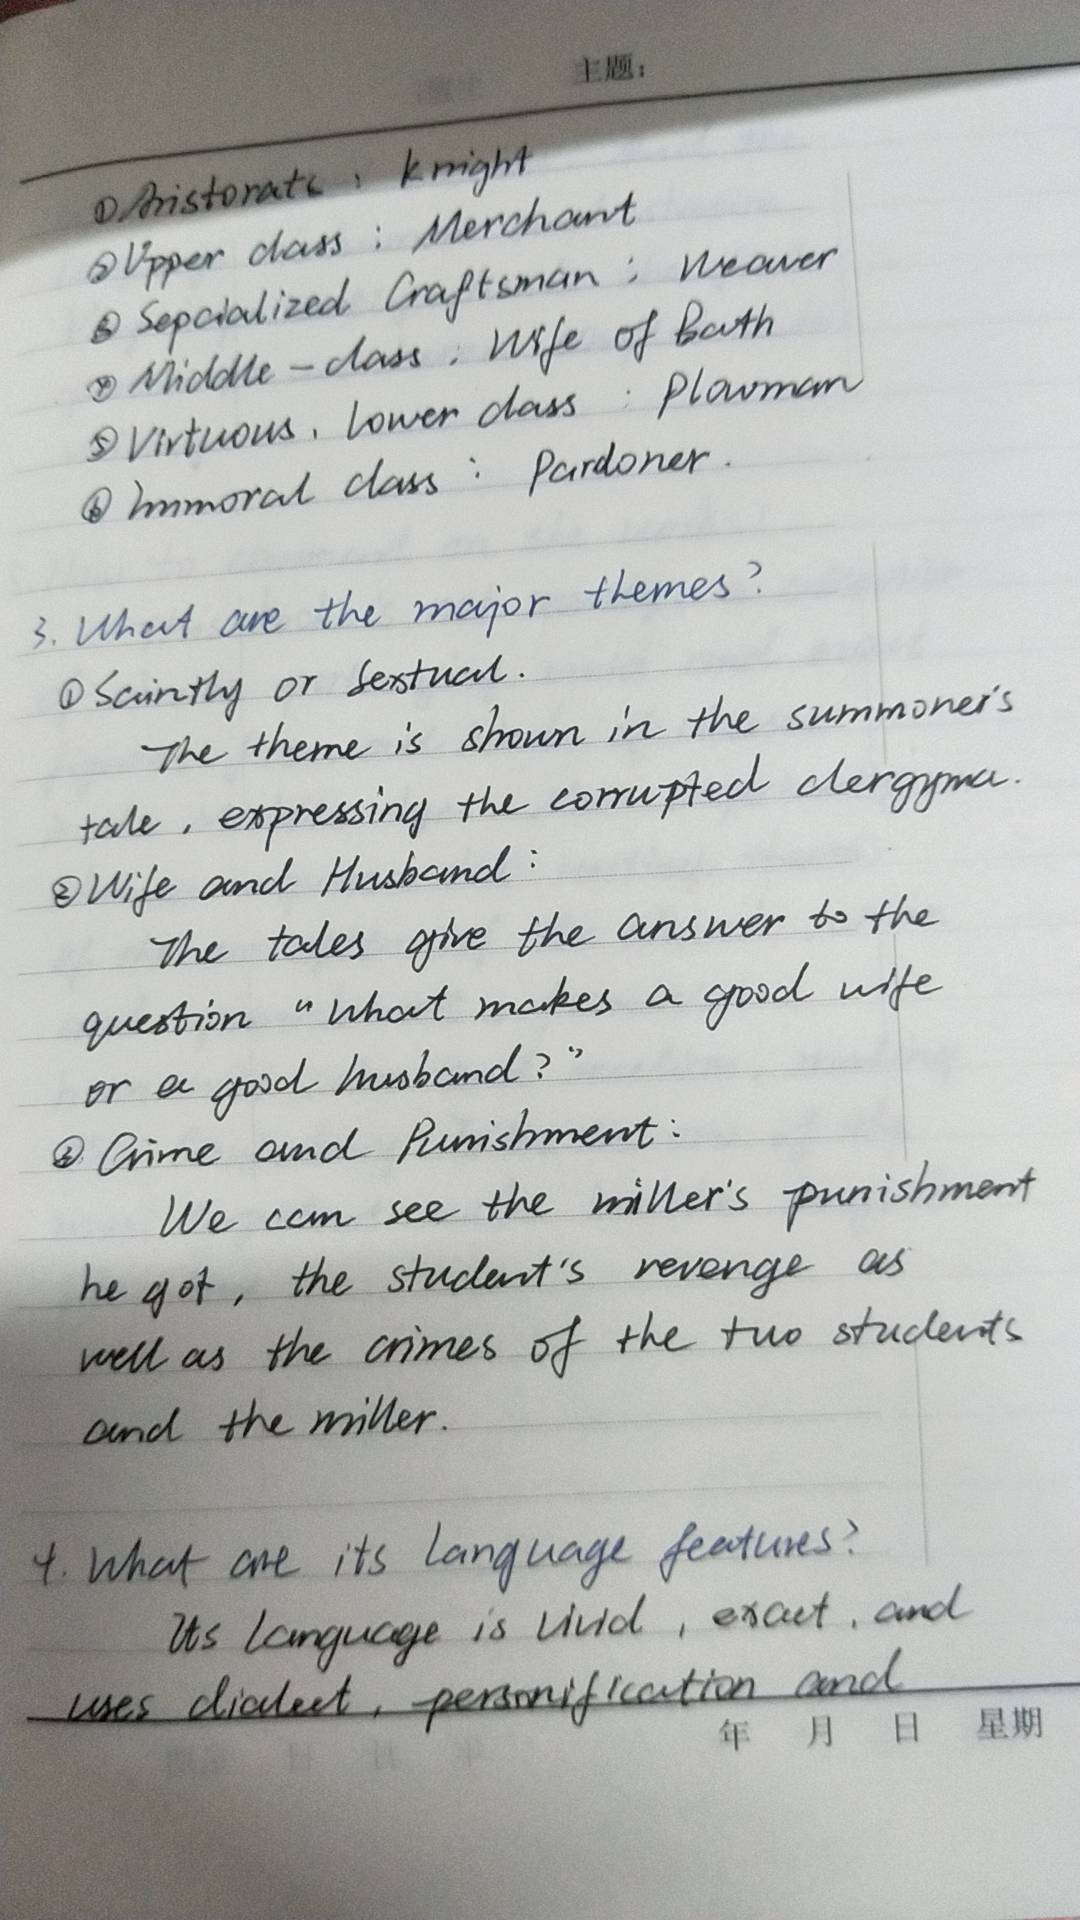 主题:
①Aristorats: knight
②Upper class: Merchant
③Sepcialized Craftsman: Weaver
④Middle-class: Wife of Bath
⑤Virtuous, Lower class: Plowman
⑥Immoral class: Pardoner.
3. What are the major themes?
①Saintly or Sextual.
The theme is shown in the summoner's
tale, expressing the corrupted clergyma.
②Wife and Husband:
The tales give the answer to the
question "What makes a good wife
or a good husband?"
③Crime and Punishment:
We can see the miller's punishment
he got, the student's revenge as
well as the crimes of the two students
and the miller.
4. What are its language features?
Its language is vivid, exact, and
uses dialect, personification and
年 月 日 星期